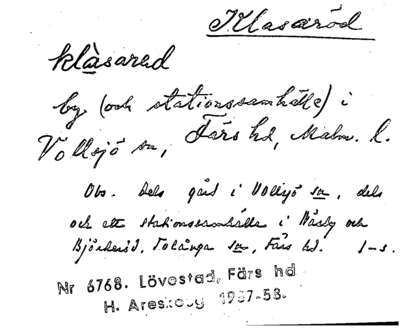 Klasaröd
klàsaröd
by (och stationssamhälle) i
Vollsjö sn, Färs hd, Malm. l.
Obs. Dels gård i Vollsjö sn, dels
och ett stationssamhälle i Näsby och
Björkeröd, Tolånga sn, Färs hd. s-s.
Nr 6768. Lövestad, Färs hd
H. Areskoug 1937-58.